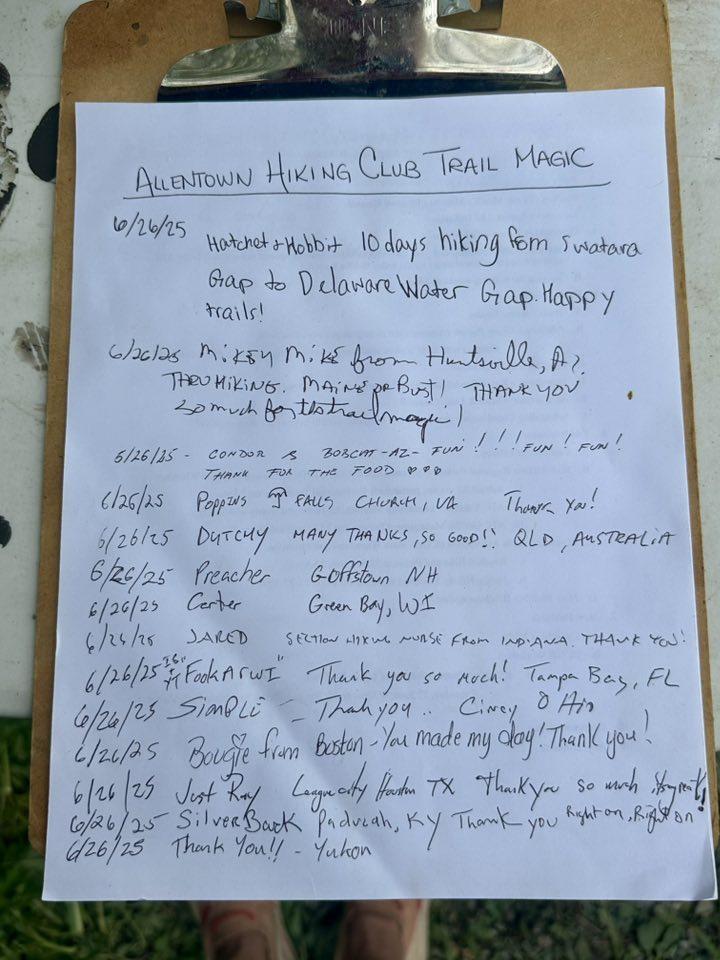 ALLENTOWN HIKING CLUB TRAIL MAGIC
6/26/25 Hatchet & Hobbit 10 days hiking from Swatara
Gap to Delaware Water Gap. Happy
trails!
6/26/25 MiKEY MiKE from Huntsville,
THRU HIKING. MAINE OR BUST! THANK YOU
So much for this trail magic!
6/26/25 - CONDOR & BOBCAT -AZ- FUN!!! FUN! FUN!
THANK FOR THE FOOD ♡♡♡
6/26/25 POPPINS ☂ FALLS CHURCH, VA Thank You!
6/26/25 DUTCHY MANY THANKS, SO GOOD!! QLD, AUSTRALIA
6/26/25 Preacher Goffstown NH
6/26/25 Carter Green Bay, WI
6/26/25 JARED SECTION HIKING NURSE FROM INDIANA. THANK YOU!
6/26/25 "FookARWI" Thank you so much! Tampa Bay, FL
6/26/25 SimPLE - Thank you.. Cincy OHio
6/26/25 Bougie from Boston - You made my day! Thank you!
6/26/25 Just Ray League city Houston TX Thank you so much,
6/26/25 SilverBack Paducah, KY Thank you Right on, Right on!
6/26/25 Thank You!! - Yukon